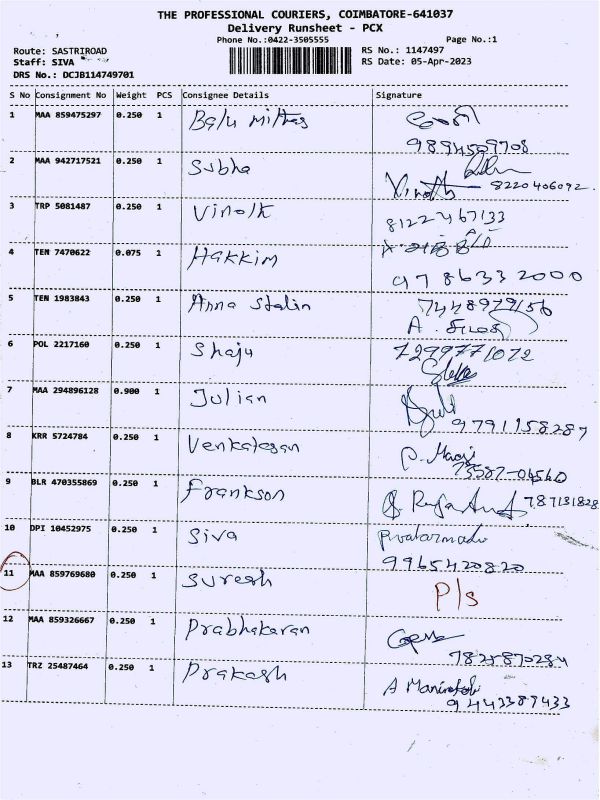 THE PROFESSIONAL COURIERS, COIMBATORE-641037
Delivery Runsheet - PCX
Phone No.:0422-3505555 Page No.:1
Route: SASTRIROAD RS No.: 1147497
Staff: SIVA RS Date: 05-Apr-2023
DRS No.: DCJB114749701
S No Consignment No Weight PCS Consignee Details Signature
1 MAA 859475297 0.250 1 Balu mithas
9894509708
2 MAA 942717521 0.250 1 Subha
Vinoth 8220406092.
3 TRP 5081487 0.250 1 Vinoth 8122467133
4 TEN 7470622 0.075 1 Hakkim
9786332000
5 TEN 1983843 0.250 1 Anna Stalin 7448979156
A.
6 POL 2217160 0.250 1 Shaju 7299771072
7 MAA 294896128 0.900 1 Julian
9791158287
8 KRR 5724784 0.250 1 Venkatesan P. Magi
9 BLR 470355869 0.250 1 Frankson 787131828
10 DPI 10452975 0.250 1 Siva
9965420820
11 MAA 859769680 0.250 1 Suresh P/s
12 MAA 859326667 0.250 1 Prabhakaran
7825870284
13 TRZ 25487464 0.250 1 Prakash A
9443389433